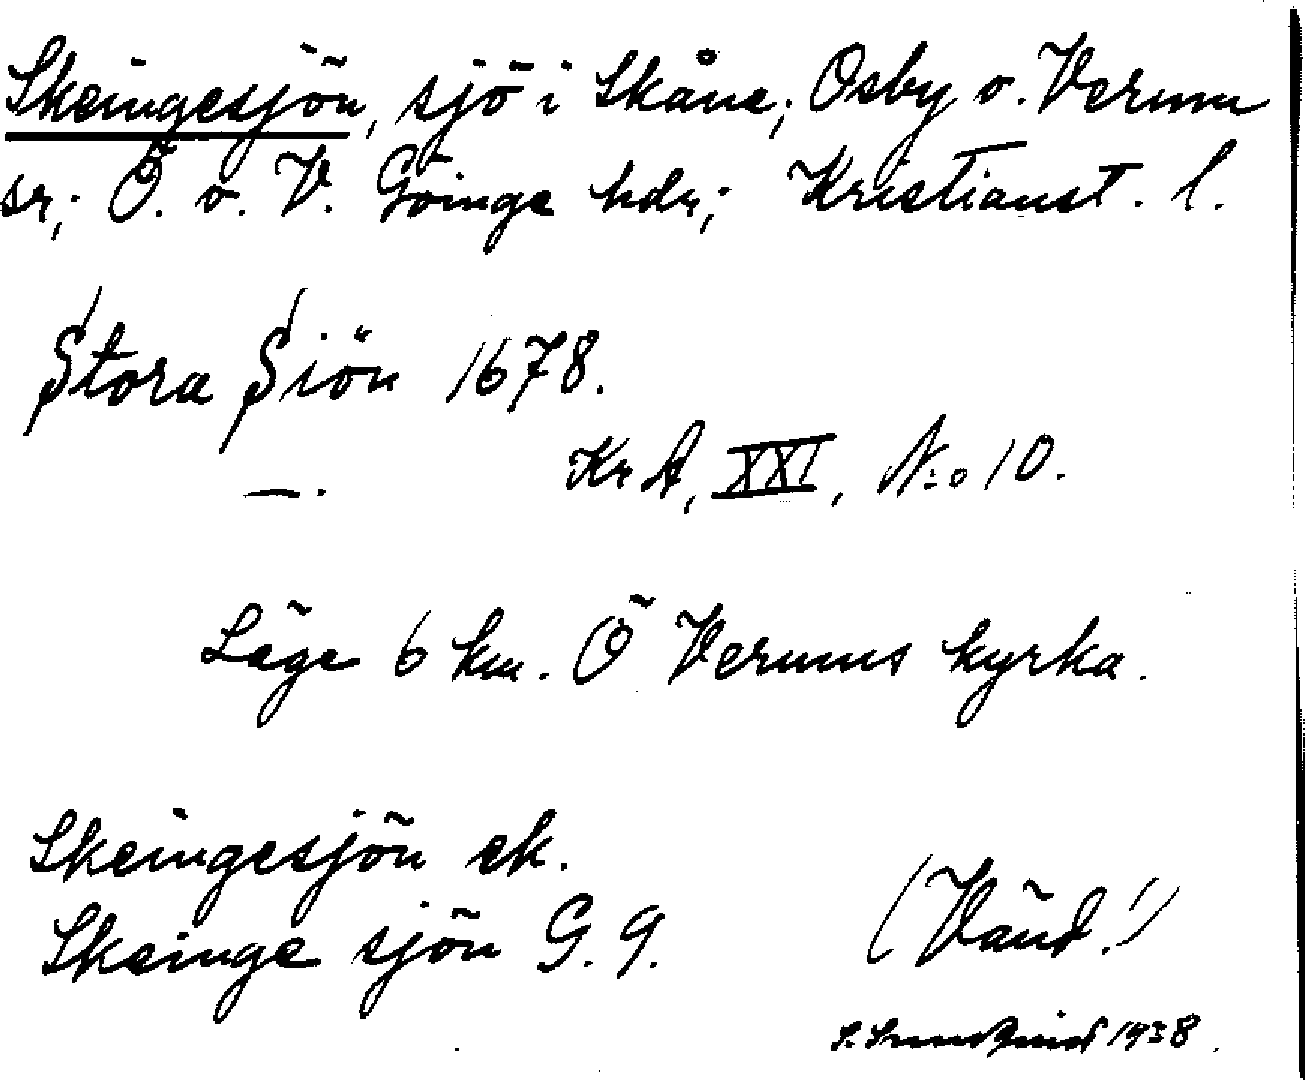 Skeingesjön, sjö i Skåne; Osby o. Verum
sr; Ö. o. V. Göinge hdr; Kristianst. l.
Stora Siön 1678.
—. KrA, XXI, N:o 10.
Läge 6 km. Ö Verums kyrka.
Skeingesjön ek.
Skeinge sjön G. 9.
(Vänd!)
1938.